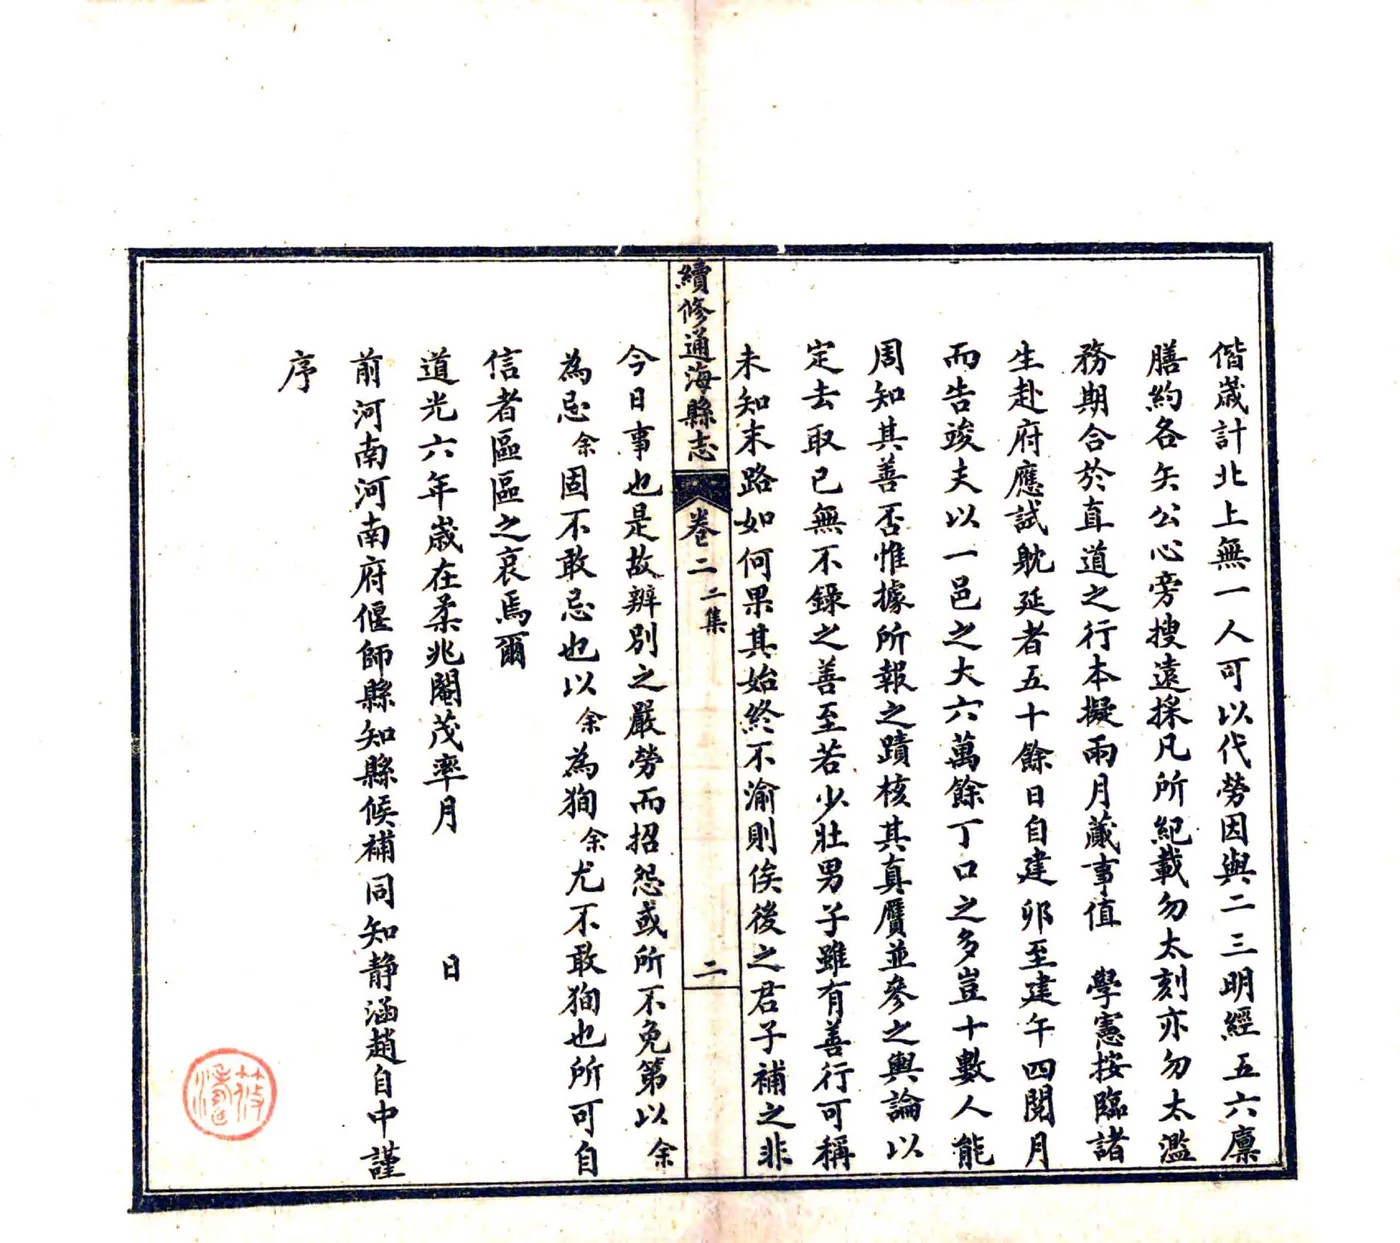 偕歲計北上無一人可以代勞因與二三明經五六廩
膳約各矢公心旁搜遠採凡所紀載勿太刻亦勿太濫
務期合於直道之行本擬兩月蕆事值　學憲按臨諸
生赴府應試躭延者五十餘日自建卯至建午四閱月
而告竣夫以一邑之大六萬餘丁口之多豈十數人能
周知其善否惟據所報之蹟核其真贋並參之輿論以
定去取已無不錄之善至若少壯男子雖有善行可稱
未知末路如何果其始終不渝則俟後之君子補之非
續修通海縣志
卷二
二集
二
今日事也是故辨別之嚴勞而招怨或所不免第以余
為忌余固不敢忌也以余為狥余尤不敢狥也所可自
信者區區之哀焉爾
道光六年歲在柔兆閹茂率月　日
前河南河南府偃師縣知縣候補同知静涵趙自中謹
序